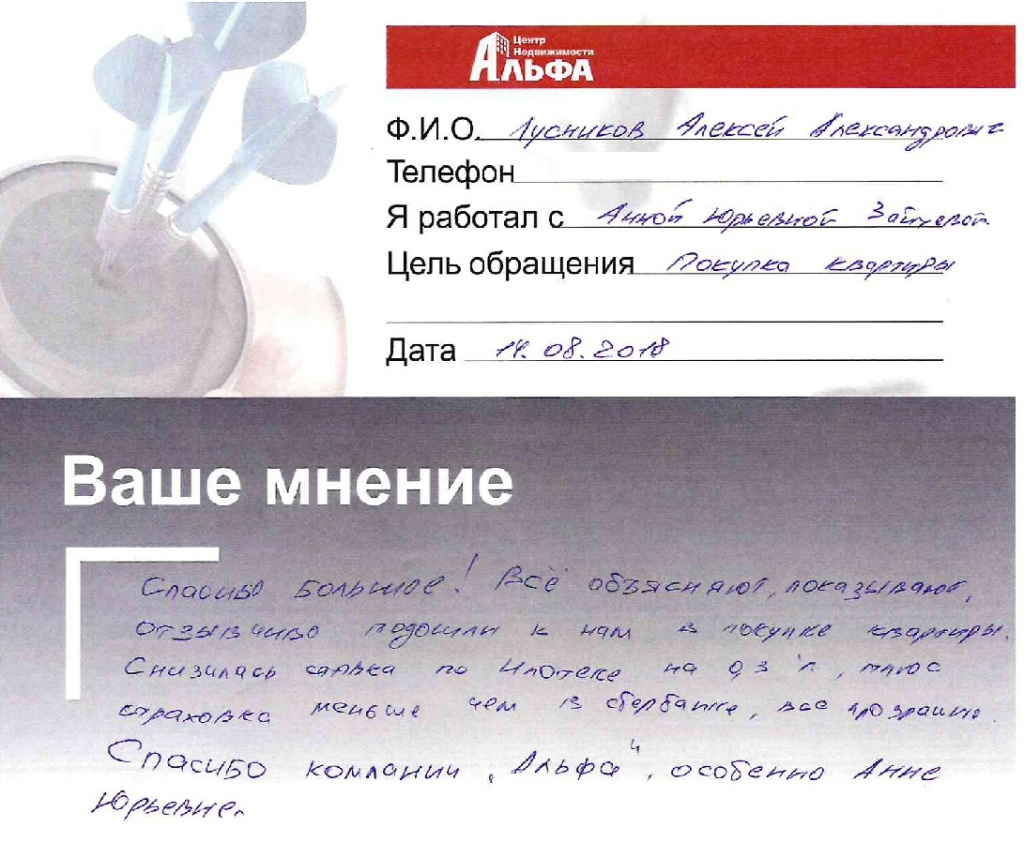 Центр
Недвижимости
АЛЬФА
Ф.И.О. Лусников Алексей Александрович
Телефон
Я работал с Анной Юрьевной Зайцевой
Цель обращения Покупка квартиры
Дата 14.08.2018
Ваше мнение
Спасибо большое! Всё объясняют, показывают,
отзывчиво подошли к нам в покупке квартиры.
Снизилась ставка по Ипотеке на 0,3 п, плюс
страховка меньше чем в сбербанке, всё прозрачно.
Спасибо компании "Альфа", особенно Анне
Юрьевне.